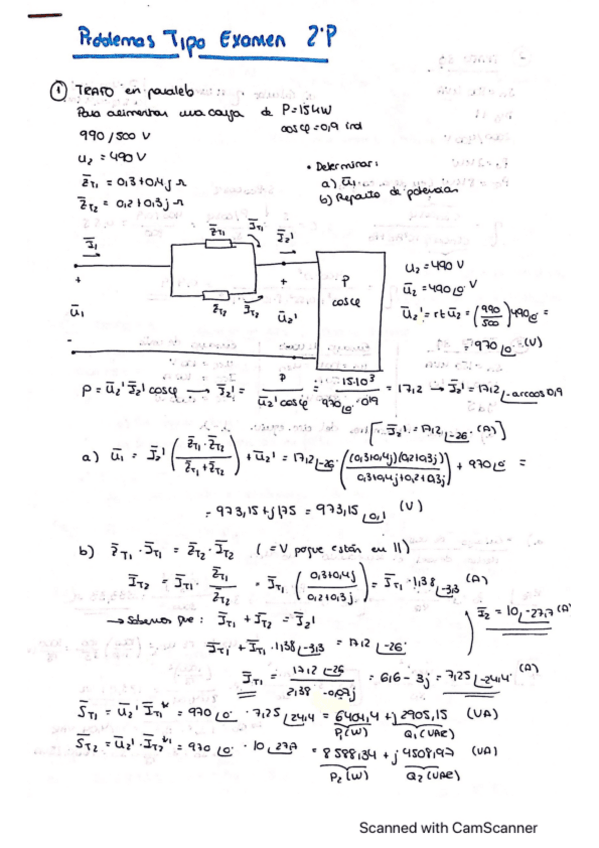 Problemas Tipo Examen 2ºP
① TRAFO en paralelo
Para alimentar una carga de P=15kW
cosφ=0,9 ind
990/500 V
U2 = 490V
Z̄T1 = 0,3+0,4j Ω
Z̄T2 = 0,2+0,3j Ω
• Determinar:
a) Ū1
b) Reparto de potencias
Z̄T1
ĪT1
Ī2'
Ī1
+
Ū1
-
Z̄T2
ĪT2
+
Ū2'
P
cosφ
U2 = 490 V
Ū2 = 490∠0° V
Ū2' = rt Ū2 = (990/500) 490∠0° =
= 970∠0° (V)
P = Ū2' Ī2' cosφ → Ī2' = P/(Ū2' cosφ) = 15·10³/(970∠0° · 0,9) = 17,2 → Ī2' = 17,2∠-arcos0,9
[Ī2' = 17,2∠-26° (A)]
a) Ū1 = Ī2' (Z̄T1·Z̄T2/(Z̄T1+Z̄T2)) + Ū2' = 17,2∠-26° · ((0,3+0,4j)(0,2+0,3j)/(0,3+0,4j+0,2+0,3j)) + 970∠0° =
= 973,15+j1,75 = 973,15∠0,1 (V)
b) Z̄T1 · ĪT1 = Z̄T2 · ĪT2 ( =V porque están en //)
ĪT2 = ĪT1 · Z̄T1/Z̄T2 = ĪT1 · (0,3+0,4j/0,2+0,3j) = ĪT1 · 1,38∠-3,3 (A)
→ Sabemos que: ĪT1 + ĪT2 = Ī2'
Ī2 = 10∠-27,7 (A)
ĪT1 + ĪT1 · 1,38∠-3,3 = 17,2∠-26°
ĪT1 = 17,2∠-26/(2,38 -0,07j) = 6,6 - 3j = 7,25∠-24,4° (A)
S̄T1 = Ū2' ĪT1* = 970∠0° · 7,25∠24,4 = 6404,4 + j2905,15 (VA)
P1(W) Q1(VAR)
S̄T2 = Ū2' · ĪT2* = 970∠0° · 10∠27,7 = 8588,34 + j4508,97 (VA)
P2(W) Q2(VAR)
Scanned with CamScanner